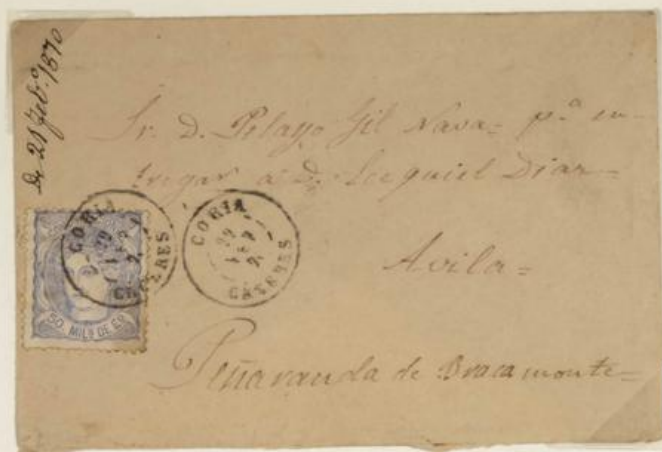 De 21 feb.º 1870
Sr. D. Pelayo Gil Nava= p.ª en-
tregar a D. Ecequiel Diaz=
Avila=
Peñaranda de Bracamonte=
CORIA
CACERES
CORIA
CACERES
50 MILS DE Eº